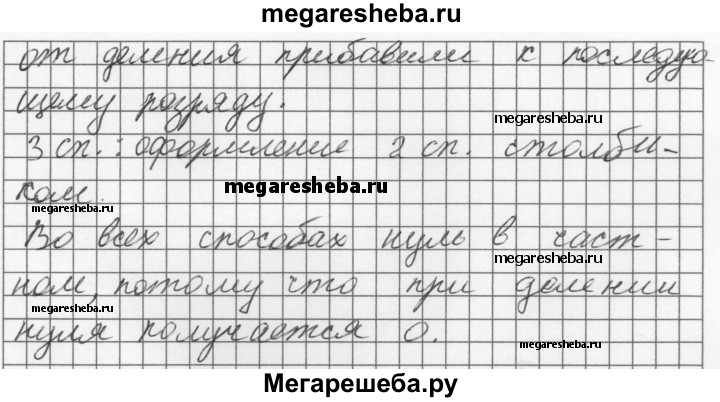 megaresheba.ru
от деления прибавили к последую-
щему разряду.
megaresheba.ru
megaresheba.ru
3 сп.: оформление 2 сп. столби-
ком.
megaresheba.ru
megaresheba.ru
Во всех способах нуль в част-
megaresheba.ru
ном, потому что при делении
megaresheba.ru
нуля получается 0.
megaresheba.ru
Мегарешеба.ру